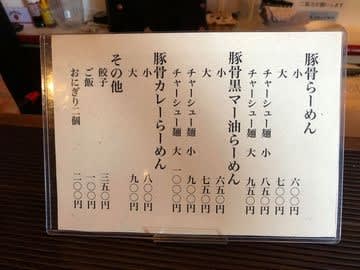 豚骨らーめん
小 六〇〇円
大 七〇〇円
チャーシュー麺 小 八五〇円
チャーシュー麺 大 九五〇円
豚骨黒マー油らーめん
小 六五〇円
大 七五〇円
チャーシュー麺 小 九〇〇円
チャーシュー麺 大 一〇〇〇円
豚骨カレーらーめん
小 八〇〇円
大 九〇〇円
その他
餃子 三五〇円
ご飯 一〇〇円
おにぎり二個 二〇〇円